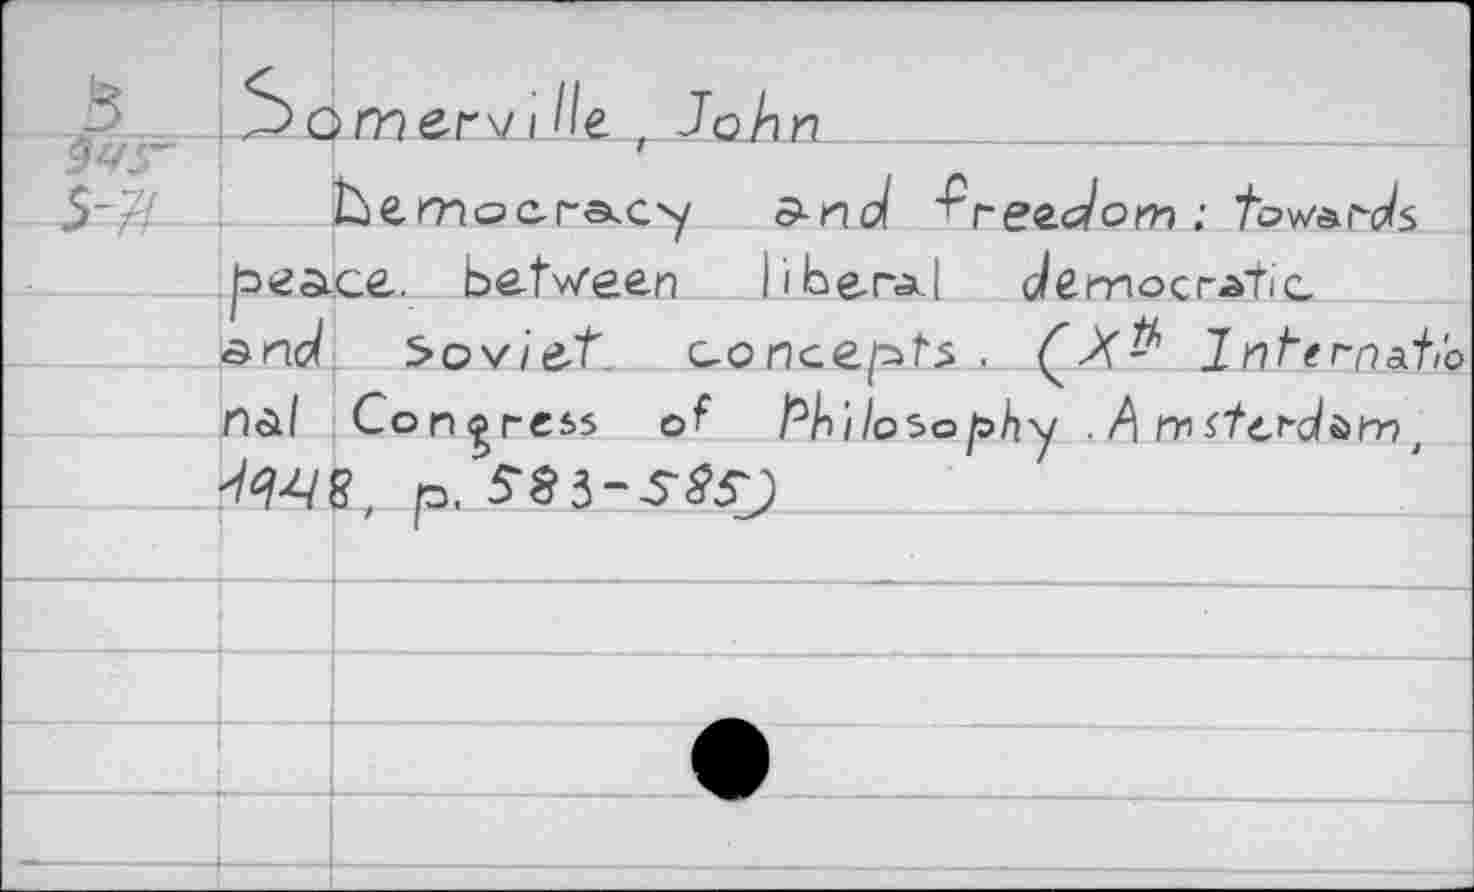 B
945
S-71
Somerville, John
Democracy and freedom : towards
peace. between liberal democratic
and Soviet concepts. (Xth Internatio
nal Congress of Philosophy. Amsterdam,
1948, p. 583-585)